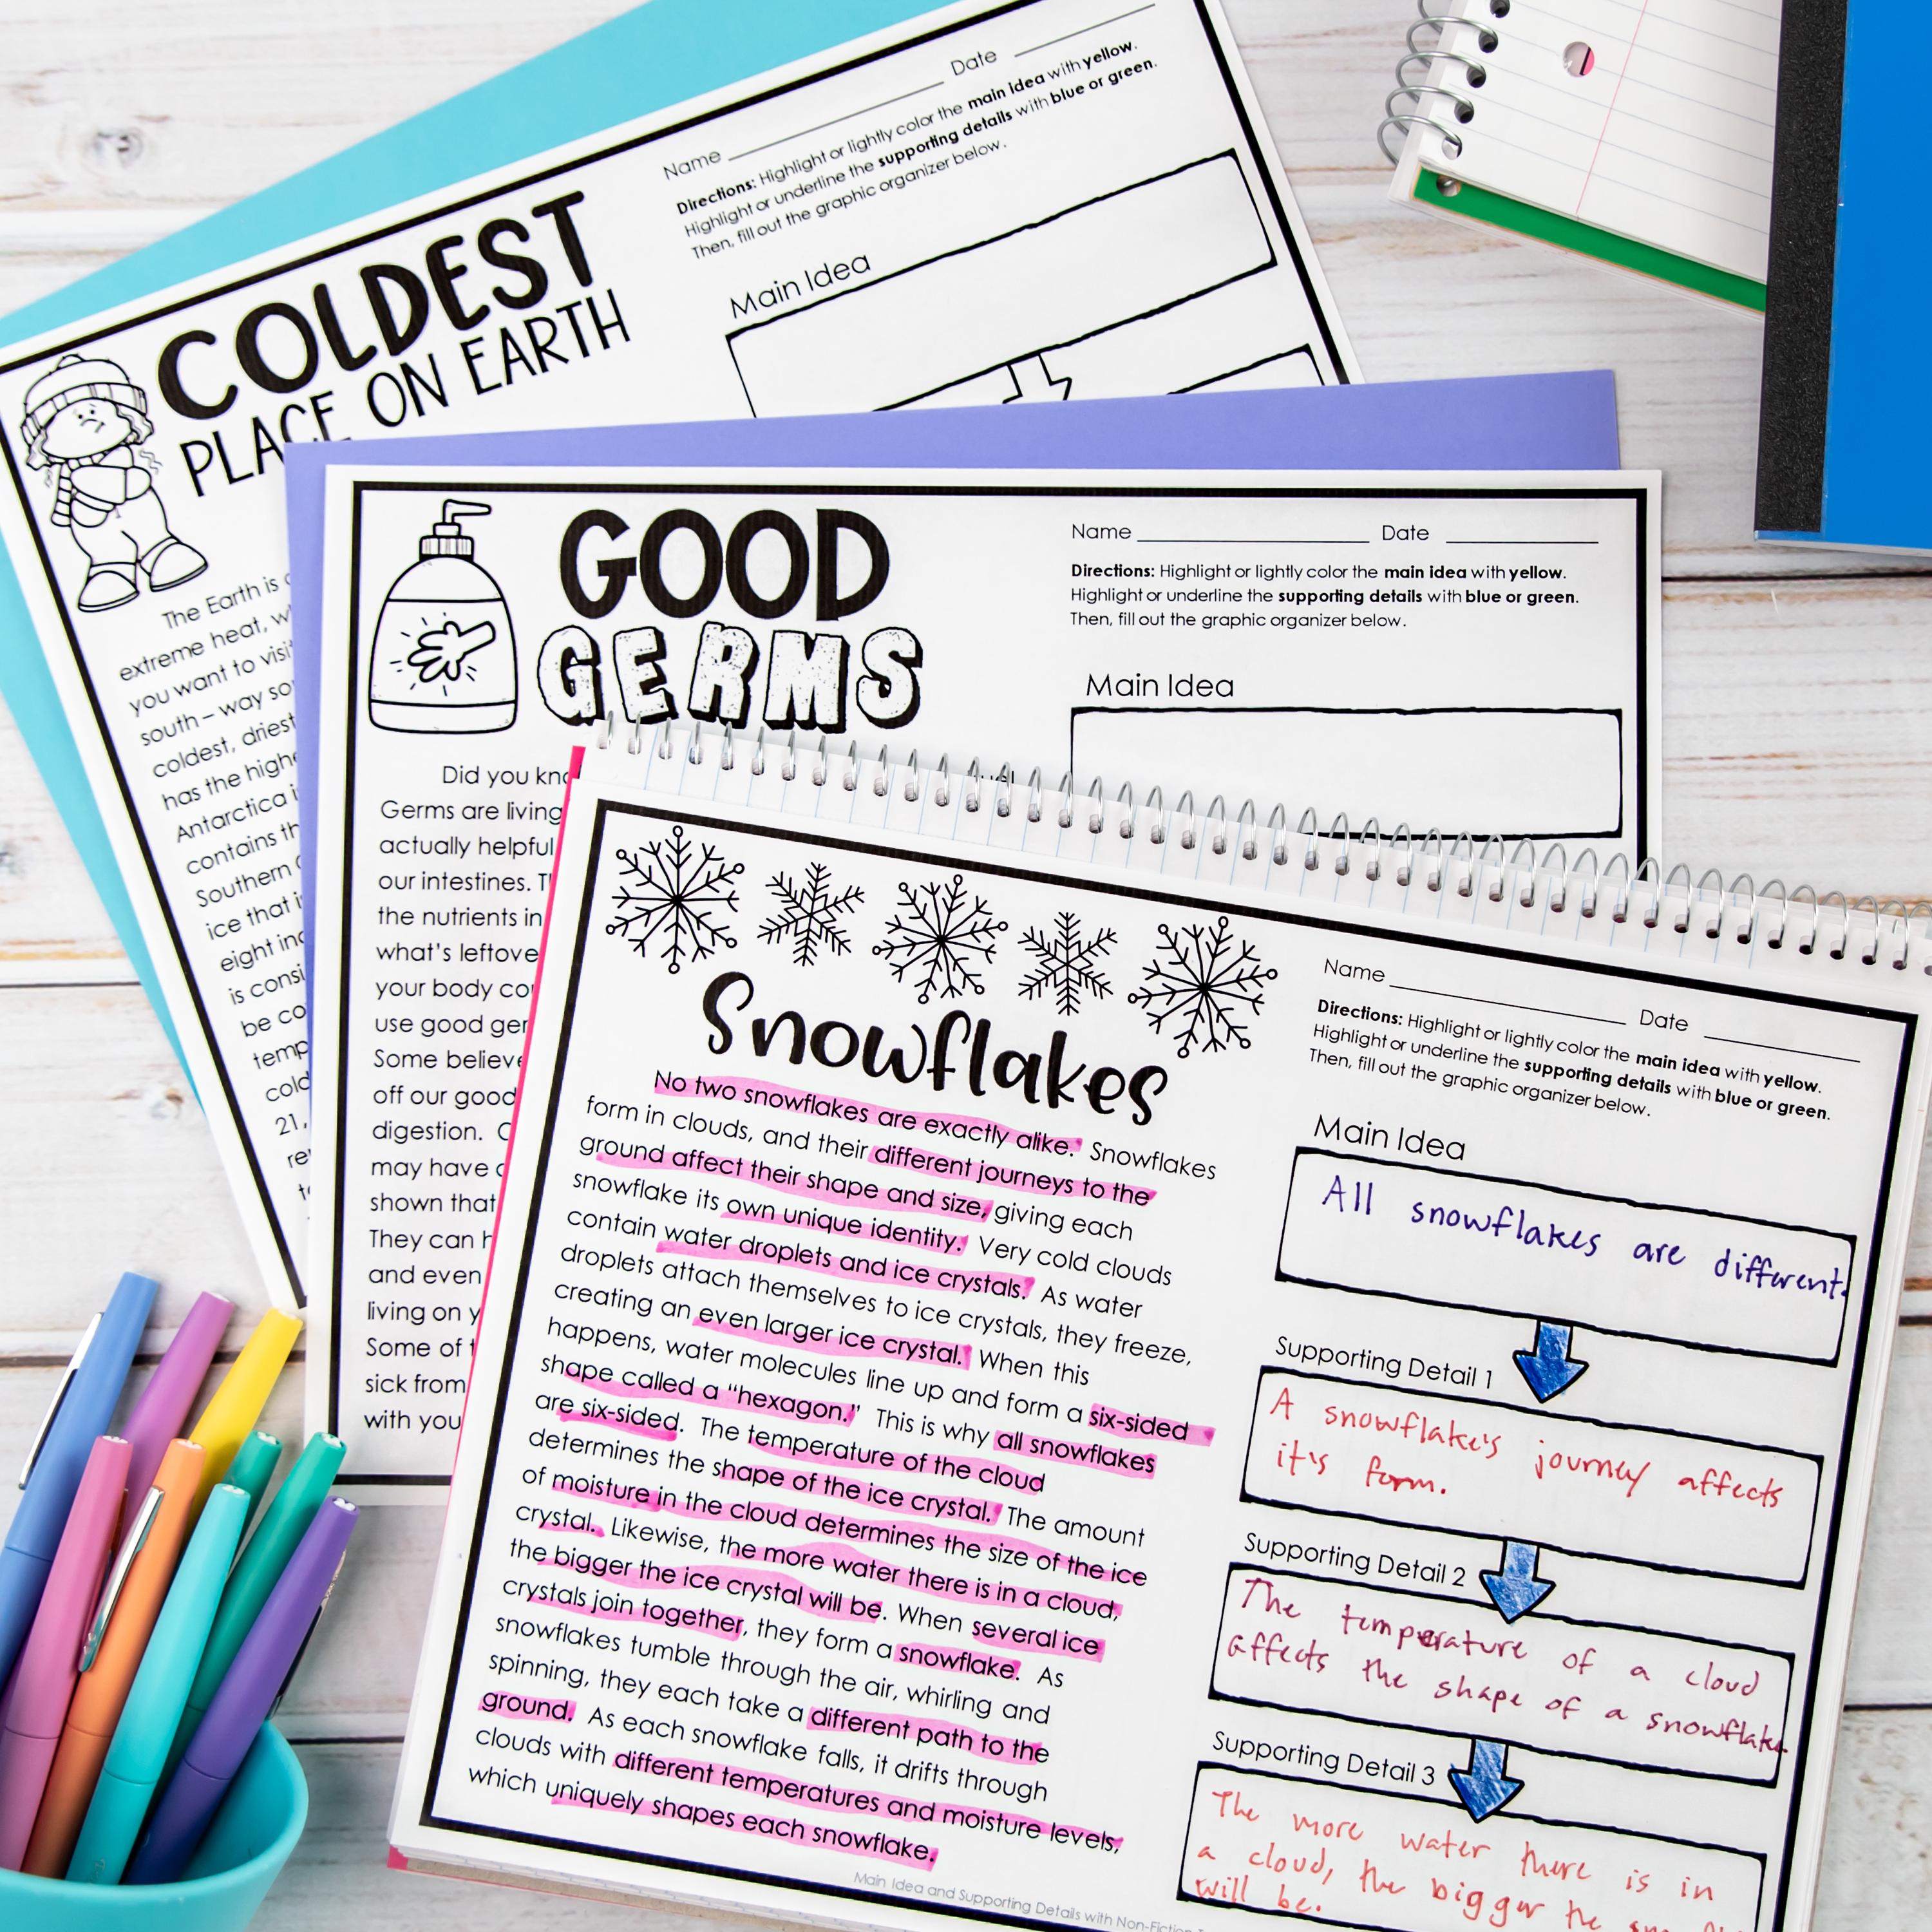 Name Date
Directions: Highlight or lightly color the main idea with yellow.
Highlight or underline the supporting details with blue or green.
Then, fill out the graphic organizer below.
COLDEST
PLACE ON EARTH
Main Idea
The Earth is
extreme heat,
you want to
south – way
coldest, driest
has the
Antarctica
contains
Southern
ice that
eight
is
be
21,
GOOD
GERMS
Name Date
Directions: Highlight or lightly color the main idea with yellow.
Highlight or underline the supporting details with blue or green.
Then, fill out the graphic organizer below.
Main Idea
Did you
Germs are living
actually helpful
our intestines.
the nutrients in
what's
your body
use good
Some believe
off our good
digestion.
may have
shown that
They can
and even
living on
Some of
sick from
with you
Snowflakes
Name Date
Directions: Highlight or lightly color the main idea with yellow.
Highlight or underline the supporting details with blue or green.
Then, fill out the graphic organizer below.
No two snowflakes are exactly alike. Snowflakes
form in clouds, and their different journeys to the
ground affect their shape and size, giving each
snowflake its own unique identity. Very cold clouds
contain water droplets and ice crystals. As water
droplets attach themselves to ice crystals, they freeze,
creating an even larger ice crystal. When this
happens, water molecules line up and form a six-sided
shape called a "hexagon." This is why all snowflakes
are six-sided. The temperature of the cloud
determines the shape of the ice crystal. The amount
of moisture in the cloud determines the size of the ice
crystal. Likewise, the more water there is in a cloud,
the bigger the ice crystal will be. When several ice
crystals join together, they form a snowflake. As
snowflakes tumble through the air, whirling and
spinning, they each take a different path to the
ground. As each snowflake falls, it drifts through
clouds with different temperatures and moisture levels,
which uniquely shapes each snowflake.
Main Idea
All snowflakes are different.
Supporting Detail 1
A snowflake's journey affects
it's form.
Supporting Detail 2
The temperature of a cloud
affects the shape of a snowflake.
Supporting Detail 3
The more water there is in
a cloud, the bigger the
will be.
Main Idea and Supporting Details with Non-Fiction